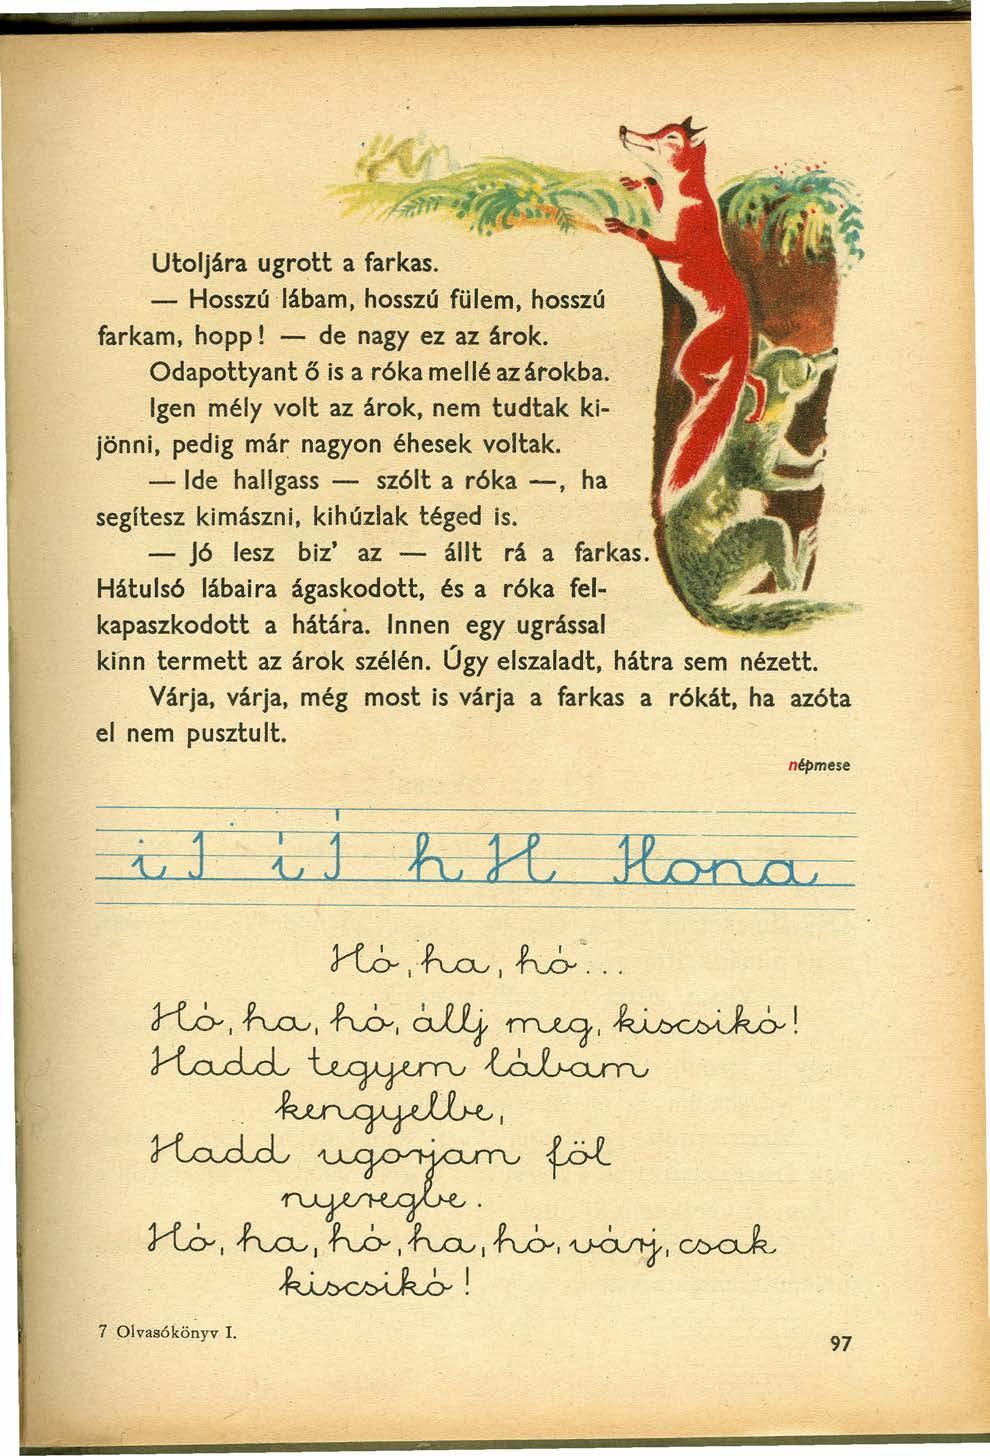 Utoljára ugrott a farkas.
— Hosszú lábam, hosszú fülem, hosszú
farkam, hopp! — de nagy ez az árok.
Odapottyant ő is a róka mellé az árokba.
Igen mély volt az árok, nem tudtak ki-
jönni, pedig már nagyon éhesek voltak.
— Ide hallgass — szólt a róka —, ha
segítesz kimászni, kihúzlak téged is.
— Jó lesz biz’ az — állt rá a farkas.
Hátulsó lábaira ágaskodott, és a róka fel-
kapaszkodott a hátára. Innen egy ugrással
kinn termett az árok szélén. Úgy elszaladt, hátra sem nézett.
Várja, várja, még most is várja a farkas a rókát, ha azóta
el nem pusztult.
népmese
i I í Í h H Ilona
Hó, ha, hó...
Hó, ha, hó, állj meg, kiscsikó!
Hadd tegyem lábam
kengyelbe,
Hadd ugorjam föl
nyeregbe.
Hó, ha, hó, ha, hó, várj, csak
kiscsikó!
7 Olvasókönyv I.
97